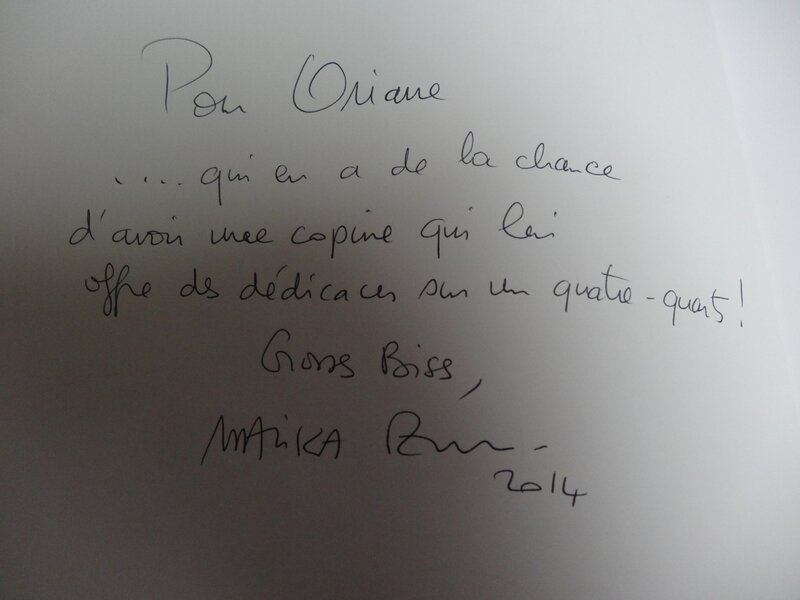 Pour Oriane
.... qui en a de la chance
d'avoir une copine qui lui
offre des dédicaces sur un quatre-quarts !
Gross Biss,
MALIKA
2014